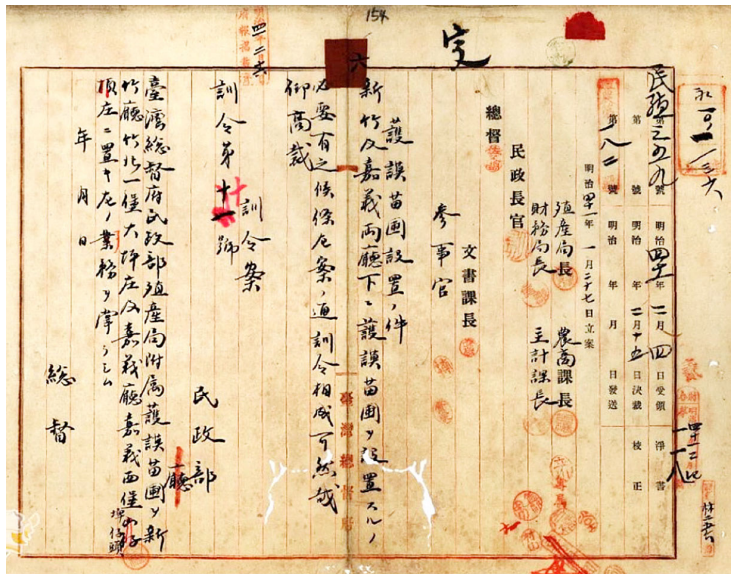 154
完
六
民殖三五九號 明治四十一年二月四日受領 淨書
第 號 明治 年二月十五日決裁 校正
第八二號 明治 年 月 日發送
明治四十一年一月二十七日立案
殖産局長 農商課長
財務局長 主計課長
民政長官
總督
文書課長
參事官
護謨苗圃設置ノ件
新竹及嘉義兩廳下ニ護謨苗圃ヲ設置スルノ
必要有之候條左案ノ通訓令相成可然哉
仰高裁
訓令案
訓令第十一號
民政部
廳
臺灣總督府民政部殖産局附属護謨苗圃ヲ新
竹廳竹北一堡大坪庄及嘉義廳嘉義西堡山仔
頂庄ニ置キ左ノ業務ヲ掌ラシム
年 月 日
総督
臺灣總督府